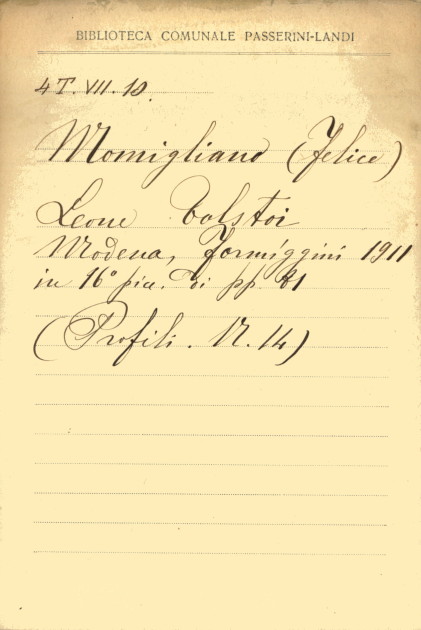 BIBLIOTECA COMUNALE PASSERINI-LANDI
4T. VII. 18
Momigliano (Felice)
Leone Tolstoi
Modena, Formiggini 1911
in 16° pic. di pp. 81
(Profili. N. 14)